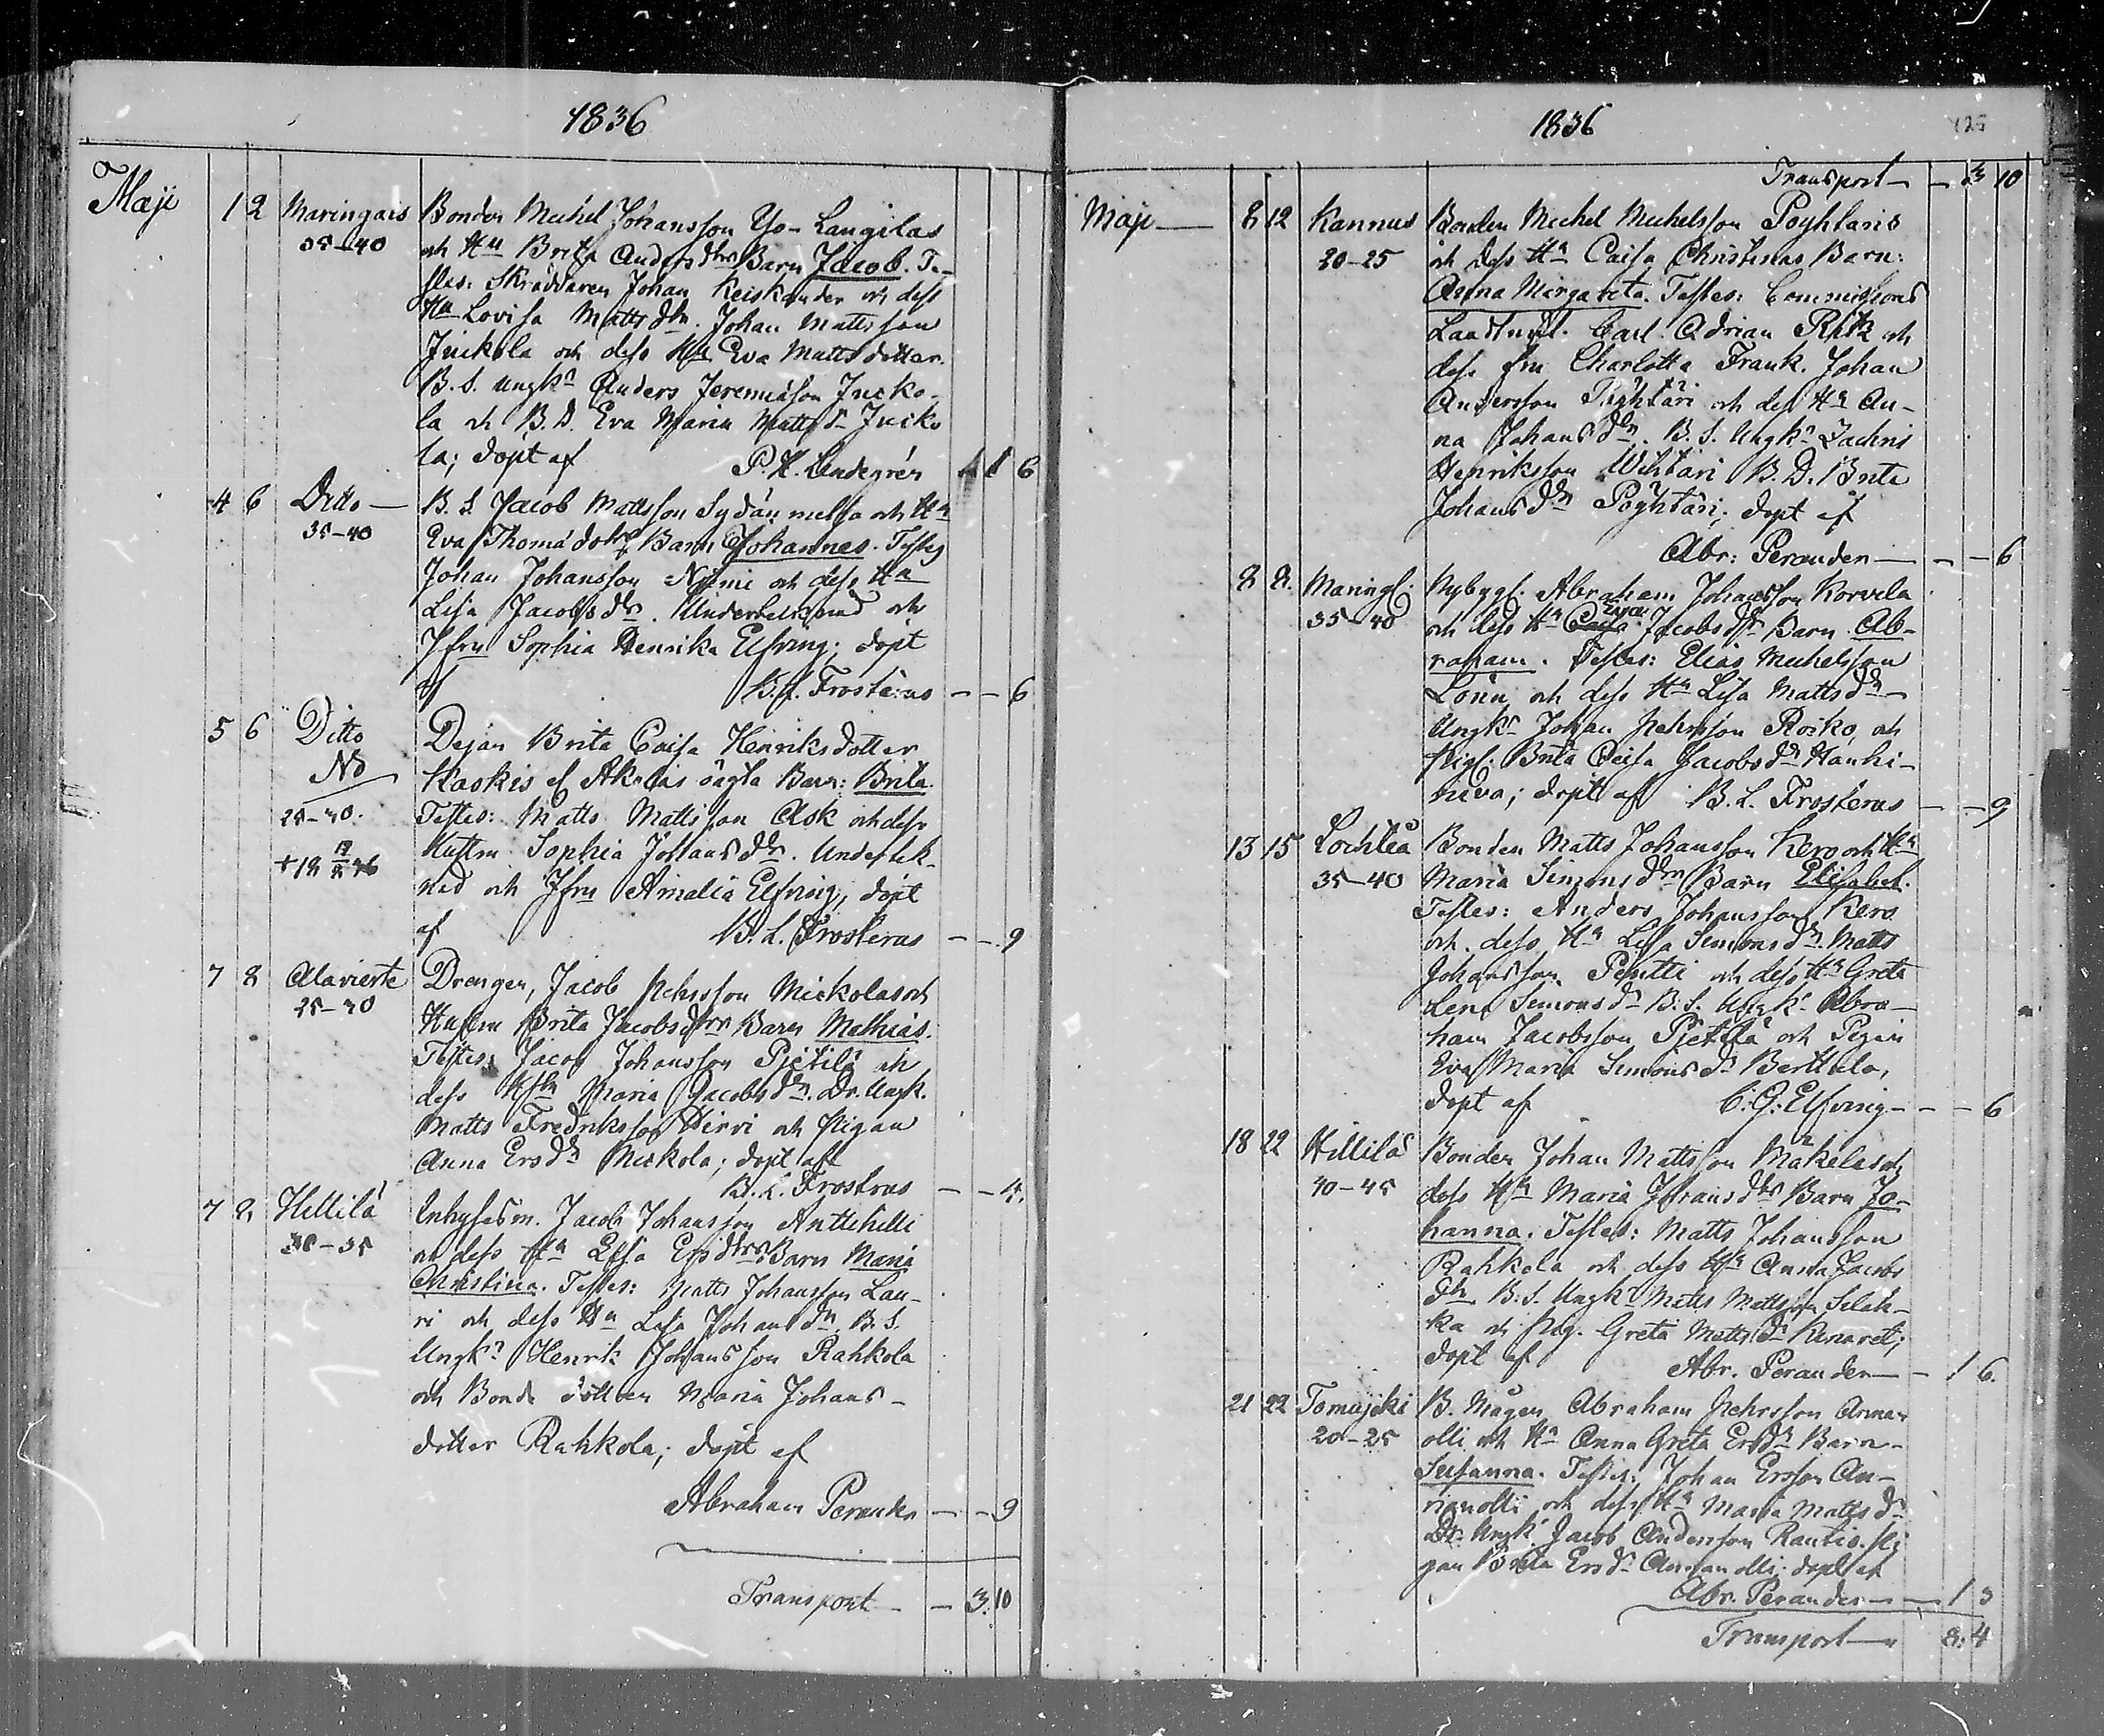 1836
Maji 1 2 Maringais Bonden Michel Johansson Yo-Langilas
35-40 och Hu Brita Anders dtrs Barn Jacob. Te-
stes: Skräddaren Johan Keiskander och dess
Hu Lovisa Matts dtr. Johan Mattsson
Juckola och dess Hu Eva Mattsdotter.
B. S. Ungkn Anders Jeremiasson Jucko-
la och B. D. Eva Maria Matts dr Jucko
la; döpt af P. H. Lindegrén 1 6
4 6 Ditto B. S. Jacob Mattsson Sydänmetsä och Hu
35-40 Eva Thomæ dotrs Barn Johannes. Testes
Johan Johansson Niemi och dess Hu
Lisa Jacobs dr. Undertecknad och
Jfru Sophia Henrika Elfving; döpt
af B. L. Frosterus - - 6
5 6 Ditto Pejan Brita Caisa Henriksdotter
No Kaskis oägta Barn: Brita.
25-40. Testes: Matts Mattsson Ask och dess
+18 17/2 46 Hustru Sophia Johans dr. Underteck-
nad och Jfru Amalia Elfving, döpt
af B. L. Frosterus - - 9
7 8 Alavieska Drengen, Jacob Pehrsson Mickolas och
25-40 Hustru Brita Jacobs dtrs Barn Mathias.
Testes: Jacob Johansson Pietilä och
dess Hustru Maria Jacobs dr. Dr. Ungk.
Matts Fredriksson Hirvi och Pigan
Anna Ers dr Mickola; döpt af
B. L. Frostrus - - 4.
7 8 Hillilä Inhyses m. Jacob Johansson Anttihilli
30-35 och dess Hu Lisa Ers dtrs Barn Maria
Christina. Testes: Matts Johansson Lau-
ri och dess Hu Lisa Johans dr. B. S.
Ungkn Henrik Johansson Rahkola
och Bonde dottren Maria Johans-
dotter Rahkola; döpt af
Abraham Perander - - 9
Transport - 3. 10
1836 125
Transport - 3 10
Maji 8 12 Kannus Bonden Michel Michelsson Pöyhtäris
20-25 och dess Hu Caisa Christinas Barn:
Anna Margareta. Testes: Commissions
Landtmät. Carl Adrian Rätz och
dess fru Charlotta Frank. Johan
Andersson Pöyhtäri och dess Hu An-
na Johans dr. B. S. Ungkn Zachris
Henriksson Wihtari B. D. Brita
Johans dr Pöyhtäri; döpt af
Abr: Perander - - 6
8 8. Marings. Nybygg. Abraham Johansson Korvela
35-40 och dess Hu Caisa Eva Jacobs dtr Barn Ab-
raham. Testes: Elias Michelsson
Lönn, och dess Hu Lisa Matts dr
Ungkn Johan Pehrsson Rosko, och
Pig. Brita Caisa Jacobs dr Hanhi-
neva; döpt af B. L. Frosterus - - 9
13 15 Lochteå Bonden Matts Johansson Kero och Hu
35-40 Maria Simons dtrs Barn Elisabet.
Testes: Anders Johansson Kero
och dess Hu Lisa Simons dr. Matts
Johansson Penttis och dess Hu Greta
Lena Simons dr B. S. Ungk. Abra-
ham Jacobsson Pietilä och Pigan
Eva Maria Simons dr Berttula,
döpt af C: G: Elfving - - 6
18 22 Hillilä Bonden Johan Mattsson Mäkeläs och
40-45 dess Hu Maria Johans dtrs Barn Jo-
hanna. Testes: Matts Johansson
Rahkola och dess Hu Anna Jacobs
dtr. B. S. Ungkn Matts Mattsson Silah-
ka och Pig. Greta Matts dr Kenaret;
döpt af Abr. Perander - 1 6.
21 22 Tomujoki B. Mågen Abraham Pehrsson Annan
20-25 olli och Hu Anna Greta Ers dr Barn
Susanna. Testes: Johan Ersson An-
nanolli och dess Hu Maria Matts dr
Dr. Ungk. Jacob Andersson Rautio. Pi
gan Brita Ers dr Annanolli; döpt af
Abr. Perander - 1 3
Transport 8: 4